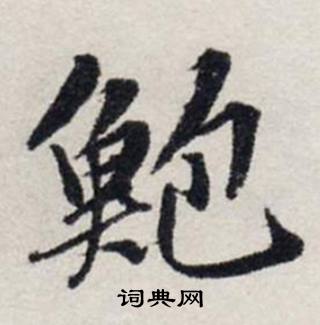 鮑
词典网